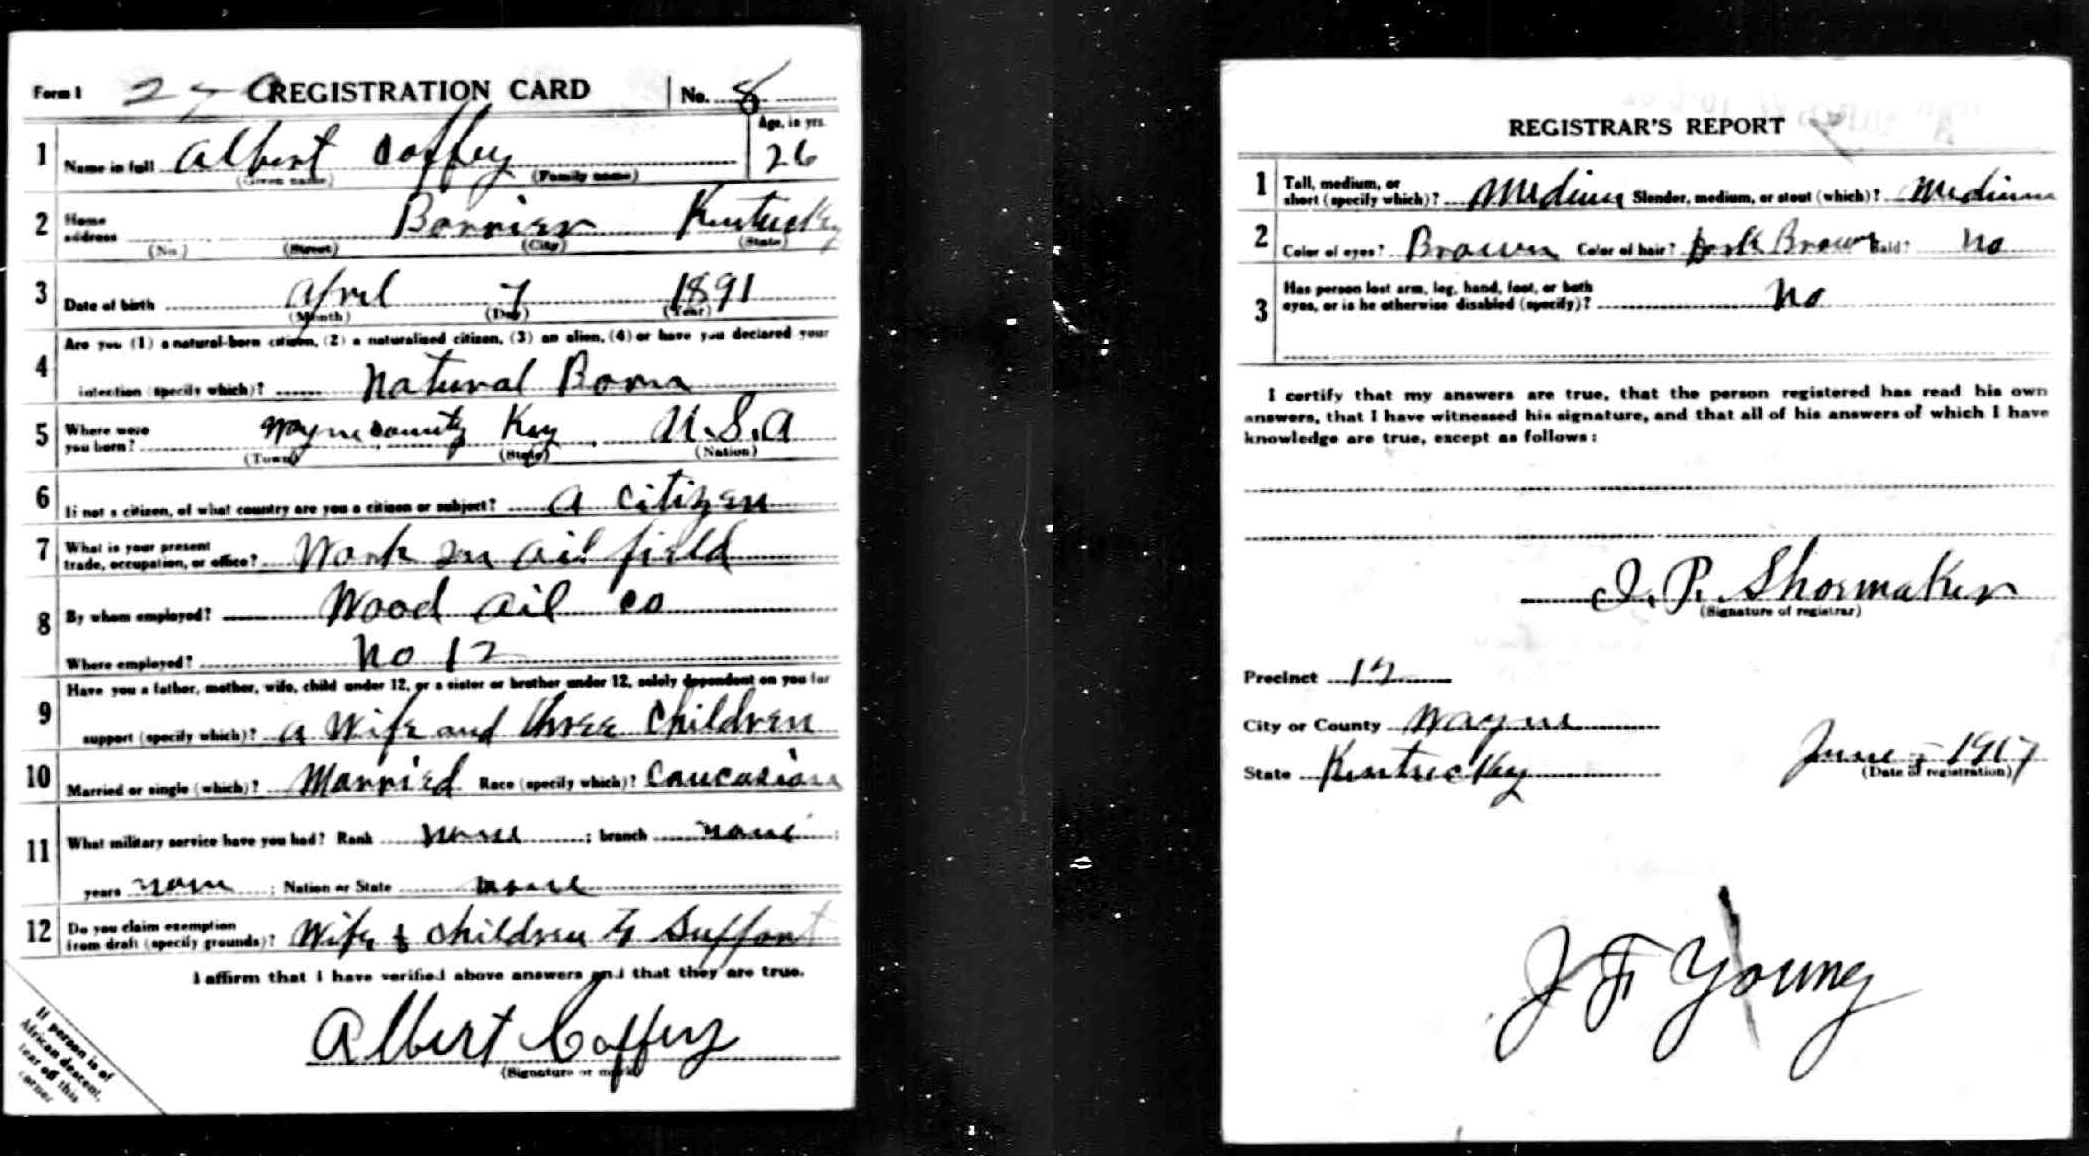 Form 1 REGISTRATION CARD No. 8
1 Name in full Albert Coffey Age, in yrs. 26
(Given name) (Family name)
2 Home address Barrier Kentucky
(No.) (Street) (City) (State)
3 Date of birth April 7 1891
(Month) (Day) (Year)
4 Are you (1) a natural-born citizen, (2) a naturalized citizen, (3) an alien, (4) or have you declared your
intention (specify which)? Natural Born
5 Where were you born? Wayne County Ky U.S.A
(Town) (State) (Nation)
6 If not a citizen, of what country are you a citizen or subject? A citizen
7 What is your present trade, occupation, or office? Work in oil field
8 By whom employed? Wood Oil Co
Where employed? No 12
9 Have you a father, mother, wife, child under 12, or a sister or brother under 12, solely dependent on you for
support (specify which)? A Wife and three Children
10 Married or single (which)? Married Race (specify which)? Caucasian
11 What military service have you had? Rank none ; branch none ;
years none ; Nation or State none
12 Do you claim exemption from draft (specify grounds)? Wife & children to support
I affirm that I have verified above answers and that they are true.
Albert Coffey
(Signature or mark)
If person is of
African descent,
tear off this
corner
REGISTRAR'S REPORT
1 Tall, medium, or short (specify which)? Medium Slender, medium, or stout (which)? Medium
2 Color of eyes? Brown Color of hair? Dark Brown Bald? No
3 Has person lost arm, leg, hand, foot, or both
eyes, or is he otherwise disabled (specify)? No
I certify that my answers are true, that the person registered has read his own
answers, that I have witnessed his signature, and that all of his answers of which I have
knowledge are true, except as follows:
I. P. Shoemaker
(Signature of registrar)
Precinct 12
City or County Wayne
State Kentucky June 5 1917
(Date of registration)
J F Young